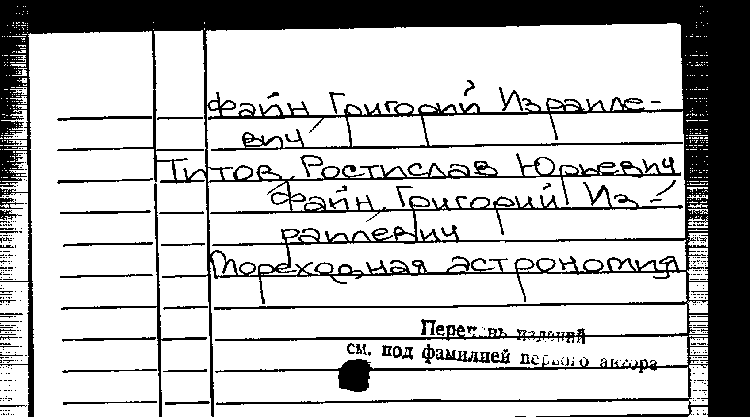 Файн Григорий Израиле-
вич
Титов, Ростислав Юрьевич
Файн, Григорий Из-
раилевич
Мореходная астрономия
Перечень изданий
см. под фамилией первого автора